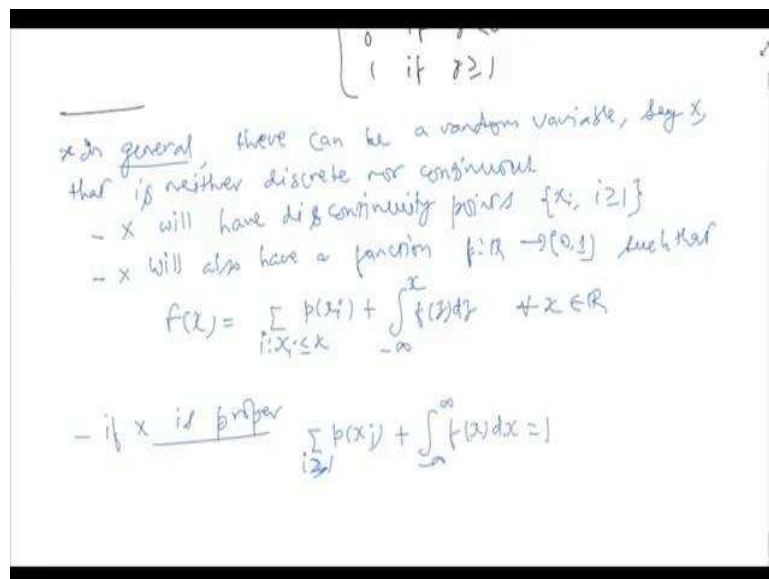 0 if
1 if z≥1
* In general, there can be a random variable, say X,
that is neither discrete nor continuous
- X will have discontinuity points {xi, i≥1}
- X will also have a function f:ℝ →[0,1] such that
F(x) = ∑ i:xi≤x p(xi) + ∫ -∞ x f(z)dz ∀ x ∈ ℝ
- if X is proper ∑ i≥1 p(xi) + ∫ -∞ ∞ f(x)dx = 1